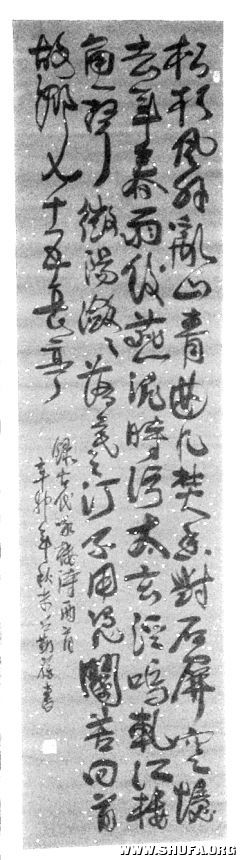 松杉風外亂山青曲几焚香對石屏空憶
去年春雨後燕泥時污太玄經嗚軋江樓
角一聲微陽瀲瀲落寒汀不用憑闌苦回首
故鄉七十五長亭
錄古代詩兩首
辛卯年秋末書
WWW.SHUFA.ORG